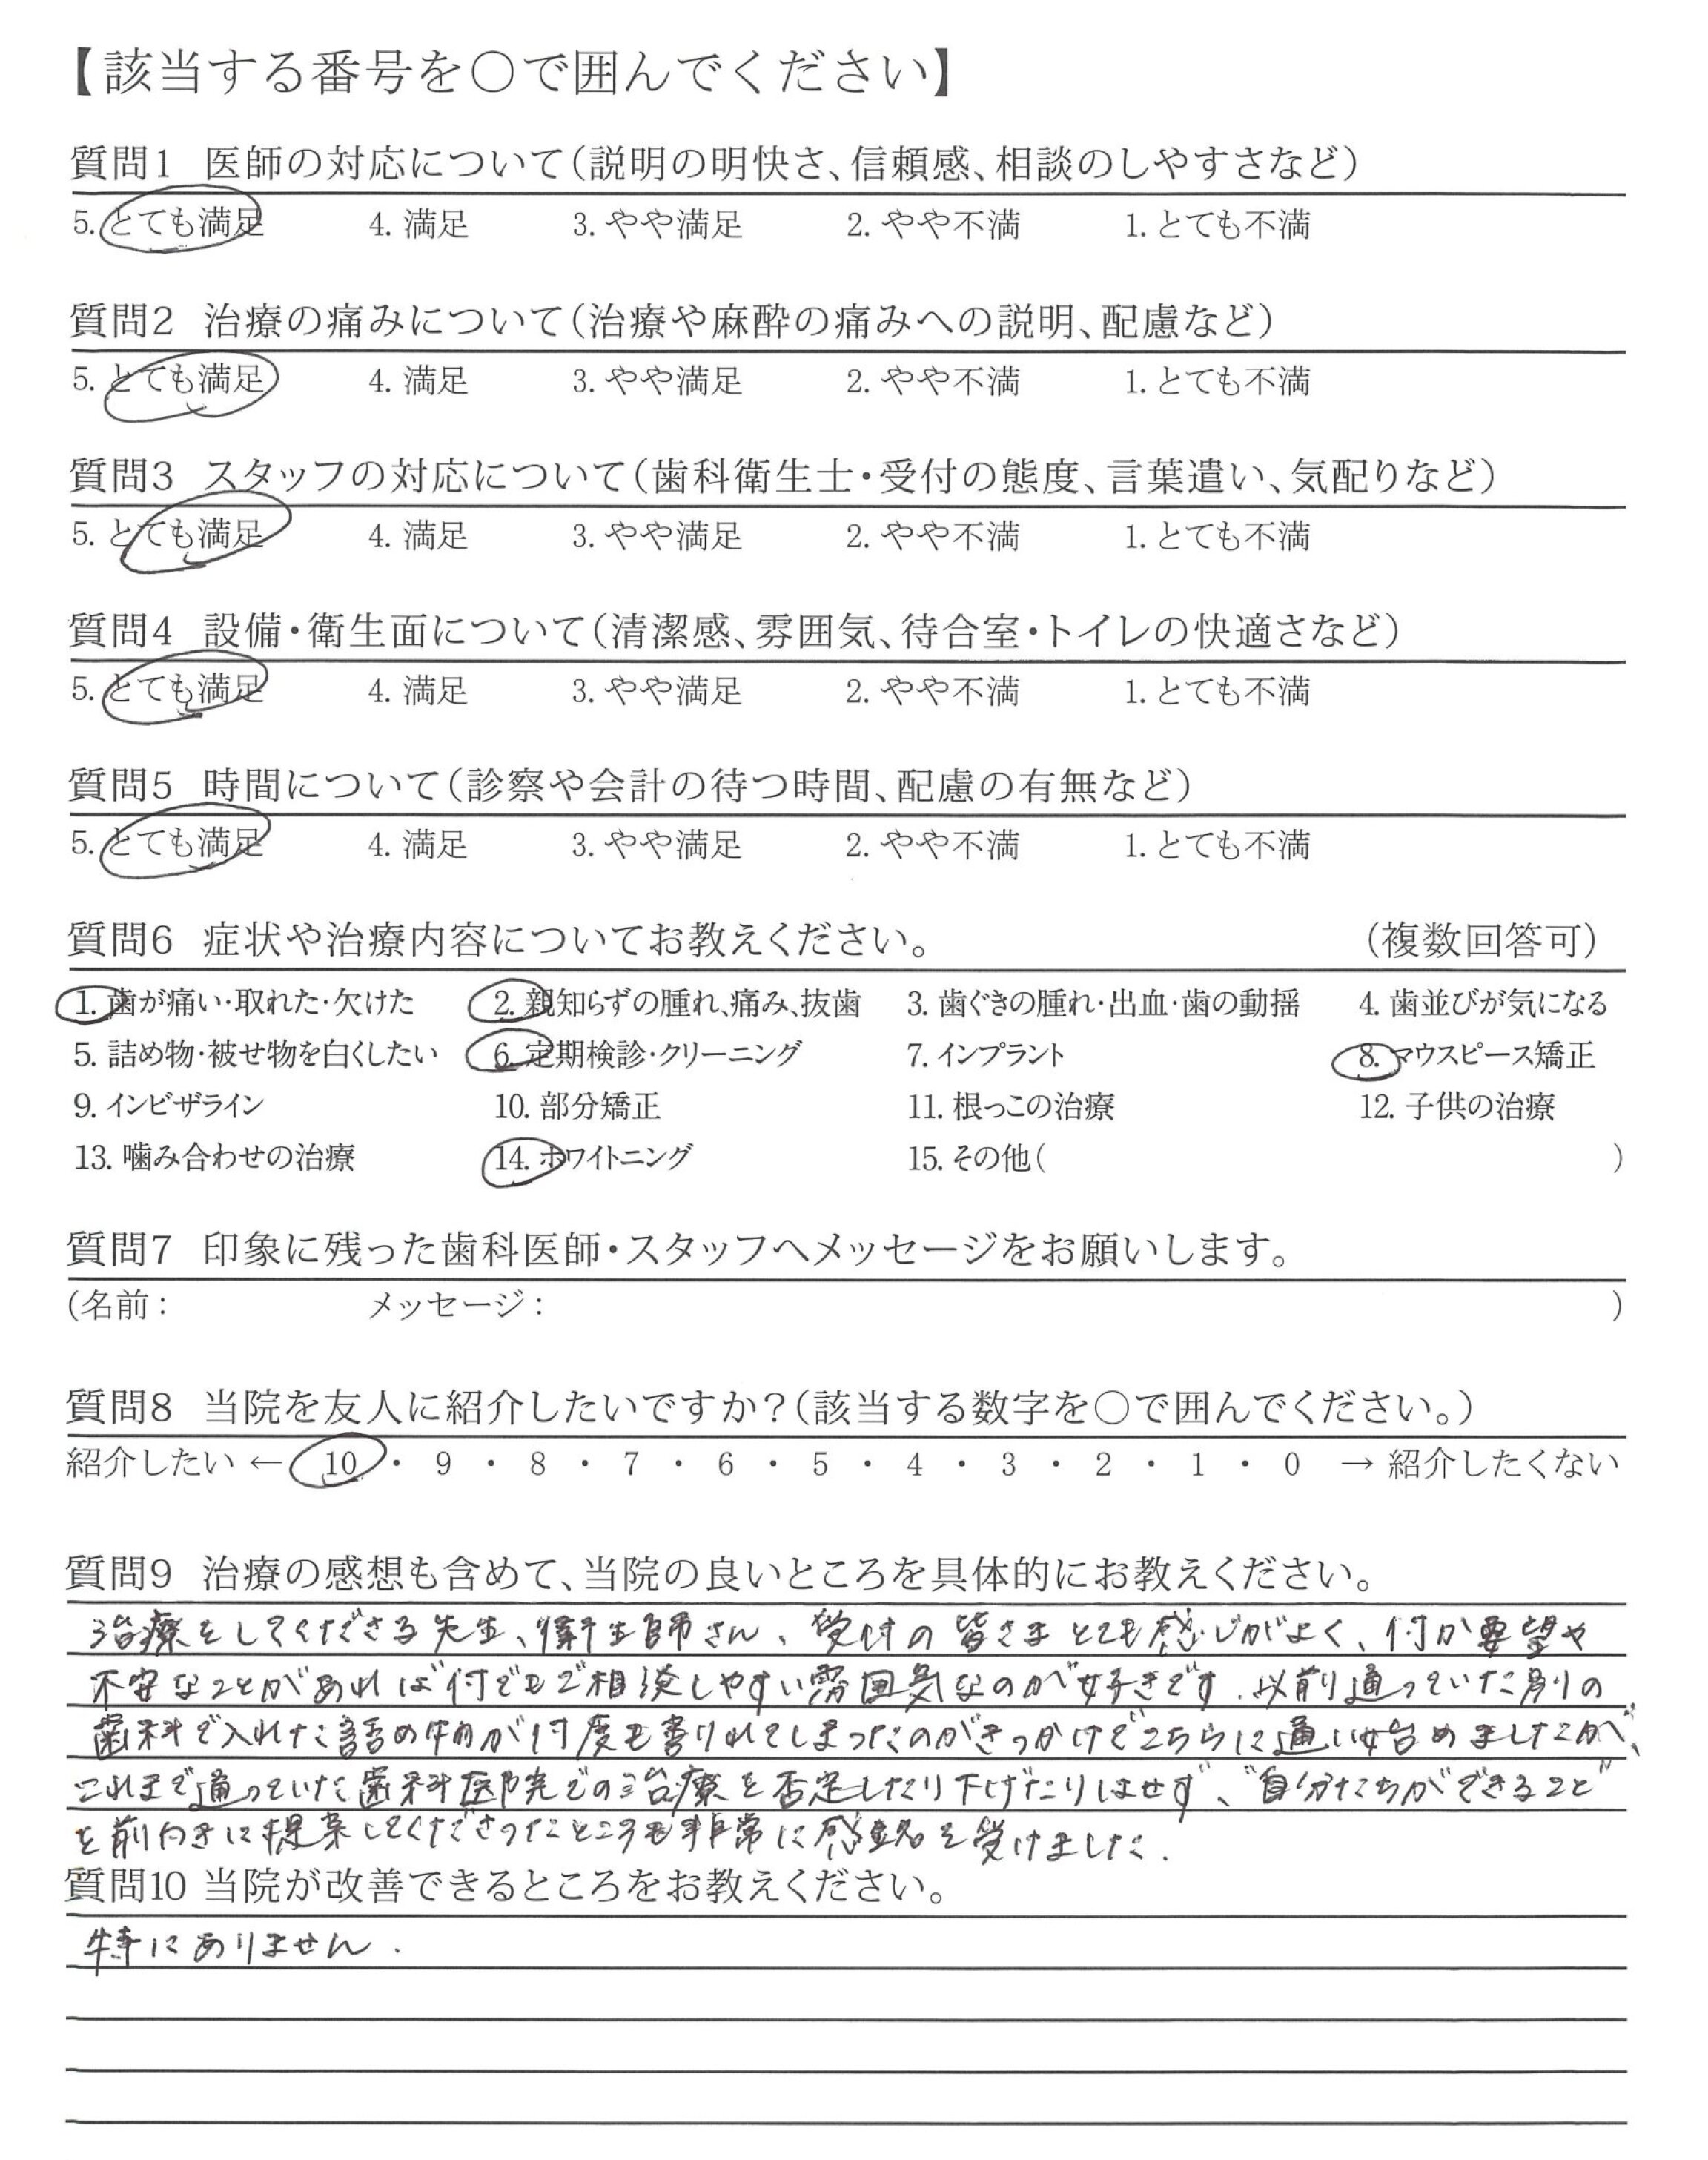 【該当する番号を○で囲んでください】
質問1 医師の対応について（説明の明快さ、信頼感、相談のしやすさなど）
5. とても満足 4. 満足 3. やや満足 2. やや不満 1. とても不満
質問2 治療の痛みについて（治療や麻酔の痛みへの説明、配慮など）
5. とても満足 4. 満足 3. やや満足 2. やや不満 1. とても不満
質問3 スタッフの対応について（歯科衛生士・受付の態度、言葉遣い、気配りなど）
5. とても満足 4. 満足 3. やや満足 2. やや不満 1. とても不満
質問4 設備・衛生面について（清潔感、雰囲気、待合室・トイレの快適さなど）
5. とても満足 4. 満足 3. やや満足 2. やや不満 1. とても不満
質問5 時間について（診察や会計の待つ時間、配慮の有無など）
5. とても満足 4. 満足 3. やや満足 2. やや不満 1. とても不満
質問6 症状や治療内容についてお教えください。 （複数回答可）
1. 歯が痛い・取れた・欠けた 2. 親知らずの腫れ、痛み、抜歯 3. 歯ぐきの腫れ・出血・歯の動揺 4. 歯並びが気になる
5. 詰め物・被せ物を白くしたい 6. 定期検診・クリーニング 7. インプラント 8. マウスピース矯正
9. インビザライン 10. 部分矯正 11. 根っこの治療 12. 子供の治療
13. 噛み合わせの治療 14. ホワイトニング 15. その他（ ）
質問7 印象に残った歯科医師・スタッフへメッセージをお願いします。
（名前： メッセージ： ）
質問8 当院を友人に紹介したいですか？（該当する数字を○で囲んでください。）
紹介したい ← 10 ・ 9 ・ 8 ・ 7 ・ 6 ・ 5 ・ 4 ・ 3 ・ 2 ・ 1 ・ 0 → 紹介したくない
質問9 治療の感想も含めて、当院の良いところを具体的にお教えください。
治療をしてくださる先生、衛生師さん、受付の皆さまとても感じがよく、何か要望や
不安なことがあれば何でもご相談しやすい雰囲気なのが好きです。以前通っていた別の
歯科で入れた詰め物が何度も割れてしまったのがきっかけでこちらに通い始めましたが、
これまで通っていた歯科医院での治療を否定したり下げたりはせず、"自分たちができること"
を前向きに提案してくださったところも非常に感銘を受けました。
質問10 当院が改善できるところをお教えください。
特にありません。